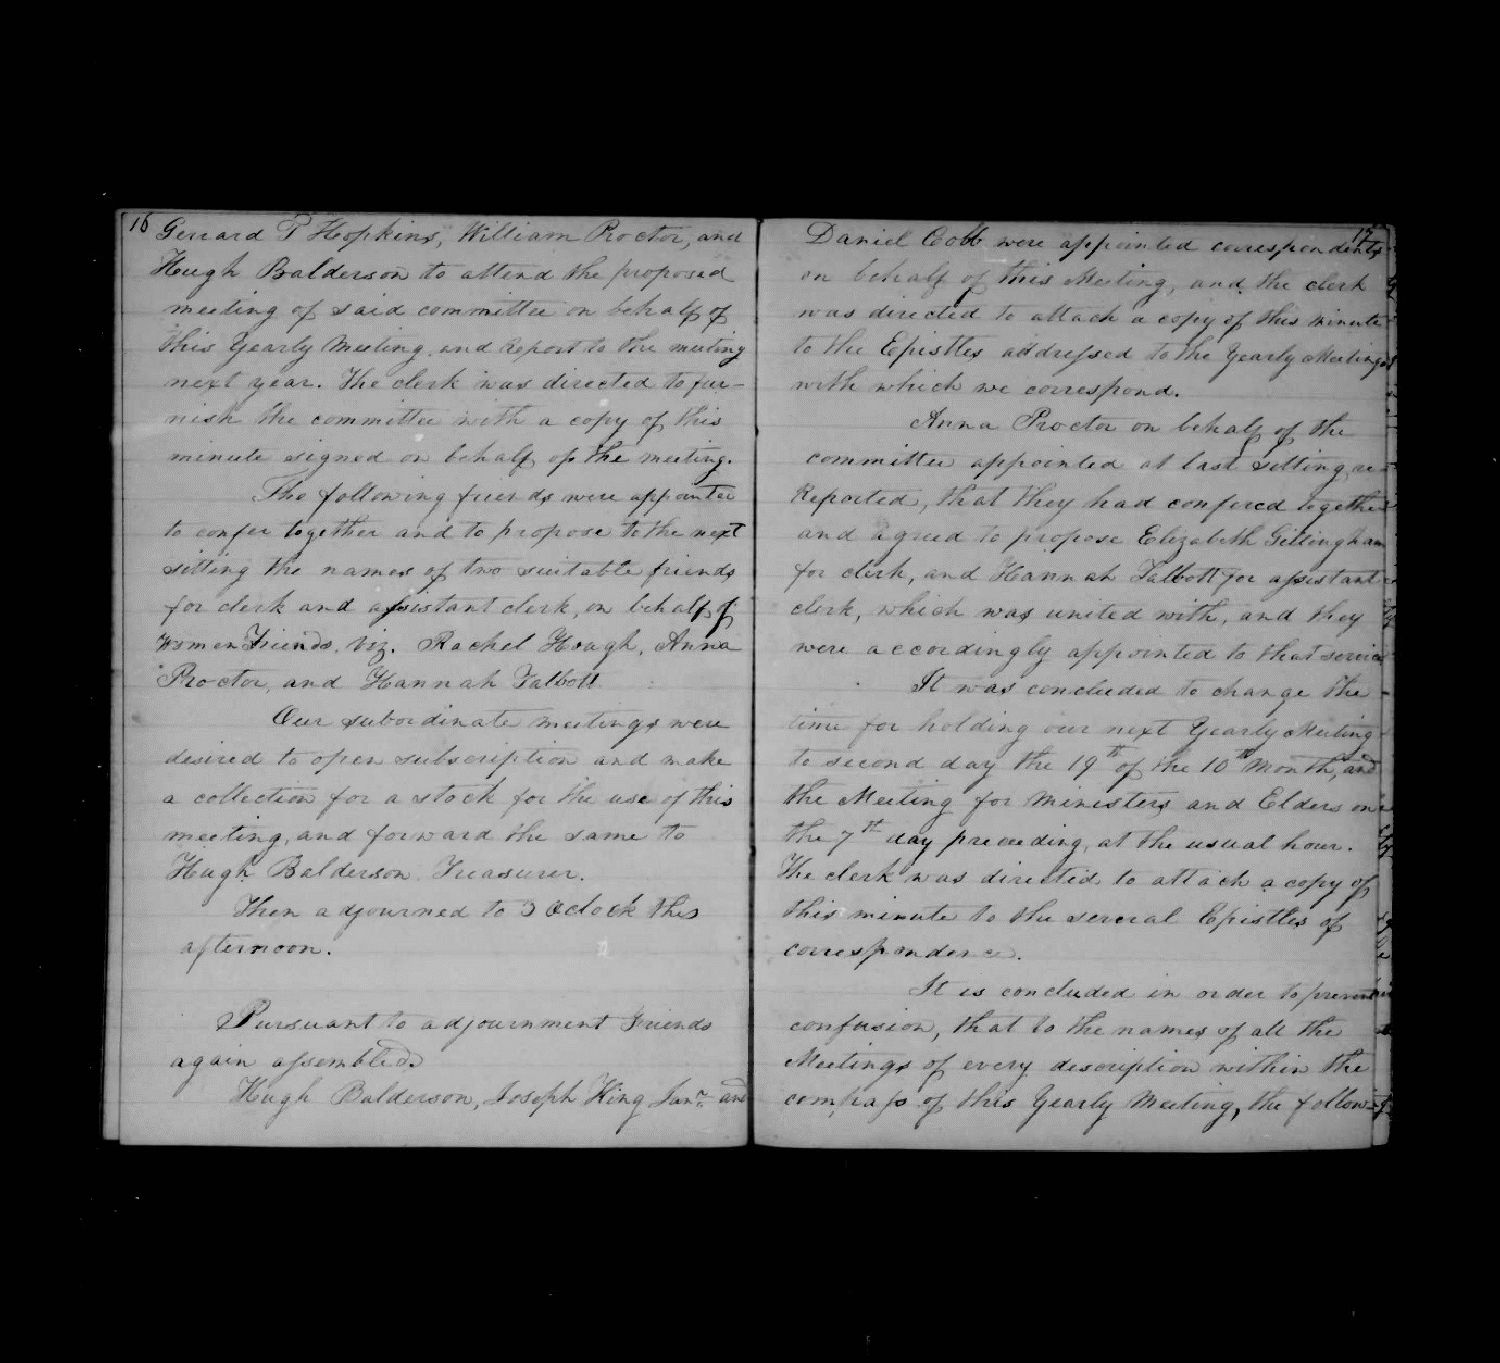 16
Gerrard T Hopkins, William Proctor, and
Hugh Balderson to attend the proposed
meeting of said committee on behalf of
this Yearly Meeting and report to the meeting
next year. The clerk was directed to fur-
nish the committee with a copy of this
minute signed on behalf of the meeting.
The following friends were appointed
to confer together and to propose to the next
sitting the names of two suitable friends
for clerk and assistant clerk, on behalf of
Women Friends, viz. Rachel Hough, Anna
Proctor, and Hannah Talbott.
Our subordinate meetings were
desired to open subscription and make
a collection for a stock for the use of this
meeting, and forward the same to
Hugh Balderson Treasurer.
Then adjourned to 3 Oclock this
afternoon.
Pursuant to adjournment Friends
again assembled.
Hugh Balderson, Joseph King Junr. and
17
Daniel Cobb were appointed correspondents
on behalf of this Meeting, and the clerk
was directed to attach a copy of this minute
to the Epistles addressed to the Yearly Meetings
with which we correspond.
Anna Proctor on behalf of the
committee appointed at last sitting, re-
Reported, that they had confered together
and agreed to propose Elizabeth Gillingham
for clerk, and Hannah Talbott for assistant
clerk, which was united with, and they
were accordingly appointed to that service
It was concluded to change the
time for holding our next Yearly Meeting
to second day the 19th of the 10th month, and
the Meeting for Ministers and Elders on
the 7th day preceeding, at the usual hour.
The clerk was directed to attach a copy of
this minute to the several Epistles of
correspondence.
It is concluded in order to prevent
confusion, that to the names of all the
Meetings of every description within the
compass of this Yearly Meeting, the follow-